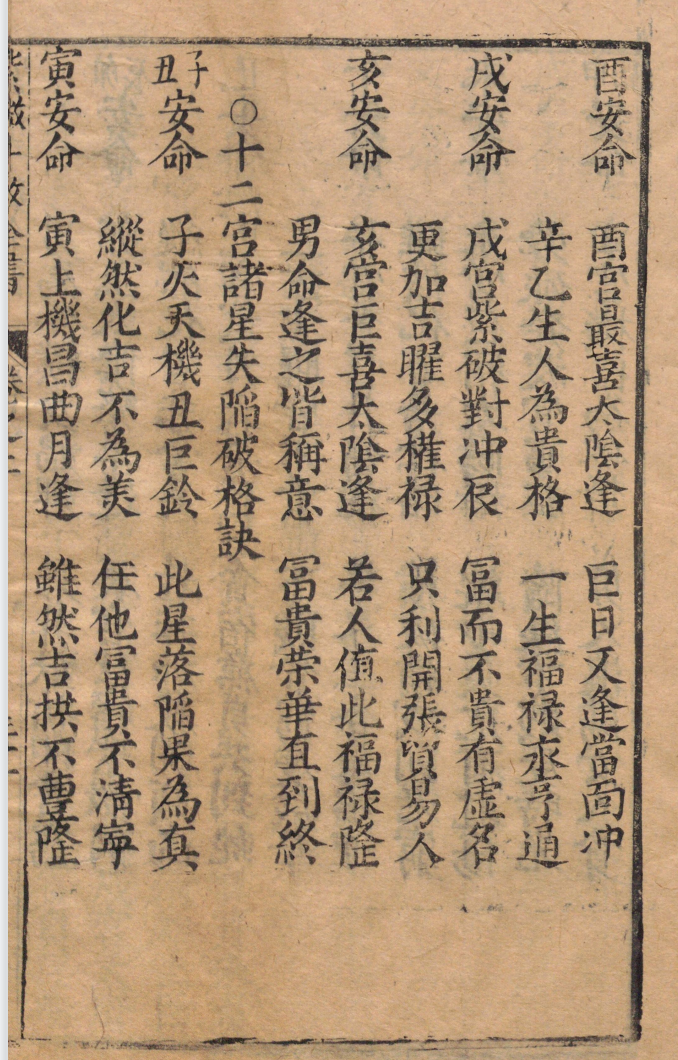 酉安命 酉宮最喜太陰逢 巨日又逢當面冲
辛乙生人為貴格 一生福禄永亨通
戌安命 戌宮紫破對冲辰 冨而不貴有虚名
更加吉曜多權禄 只利開張貿易人
亥安命 亥宮巨喜太陰逢 若人值此福禄隆
男命逢之皆稱意 冨貴荣華直到終
○十二宮諸星失陷破格訣
子丑安命 子火天機丑巨鈴 此星落陷果為真
縱然化吉不為美 任他冨貴不清寧
寅安命 寅上機昌曲月逢 雖然吉拱不豊隆
紫微斗数全書 卷之二